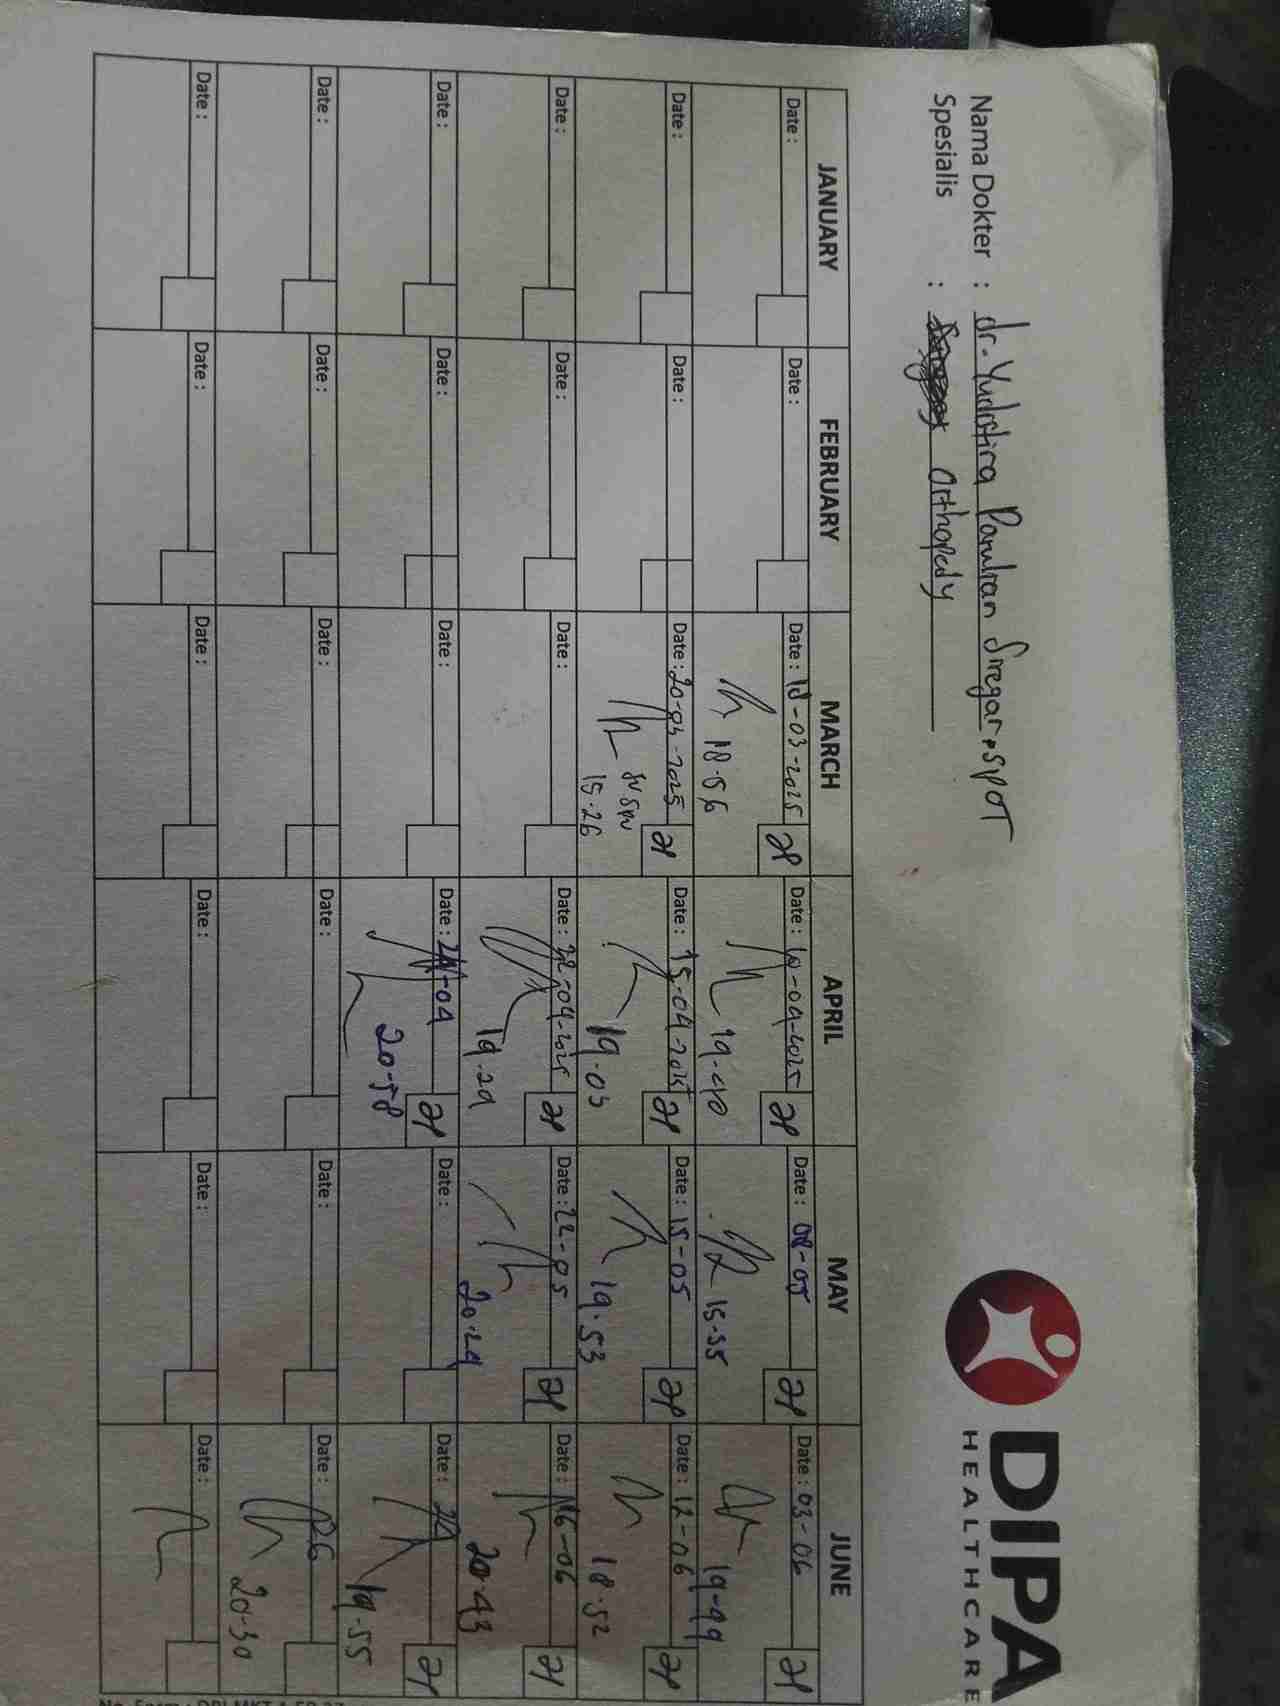 DIPA
HEALTHCARE
Nama Dokter : dr. Yudistira Panulran Siregar, SPOT
Spesialis : Orthopedy
JANUARY FEBRUARY MARCH APRIL MAY JUNE
Date : Date : Date : 18-03-2025 Date : 10-04-2025 Date : 08-05 Date : 03-06
18.56 19.40 15.55 19.49
Date : Date : Date : 20-03-2025 Date : 15-04-2025 Date : 15-05 Date : 12-06
15.26 19.03 19.53 18.52
Date : Date : Date : Date : 22-04-2025 Date : 22-05 Date : 16-06
19.29 20.29 20.43
Date : Date : Date : Date : 24-04 Date : Date : 24
20-58 19.55
Date : Date : Date : Date : Date : Date : 26
20-30
Date : Date : Date : Date : Date : Date :